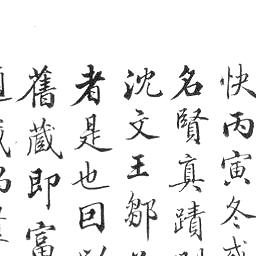 快丙寅冬
名賢真蹟
沈文王鄒
者是也回
舊蔵即富